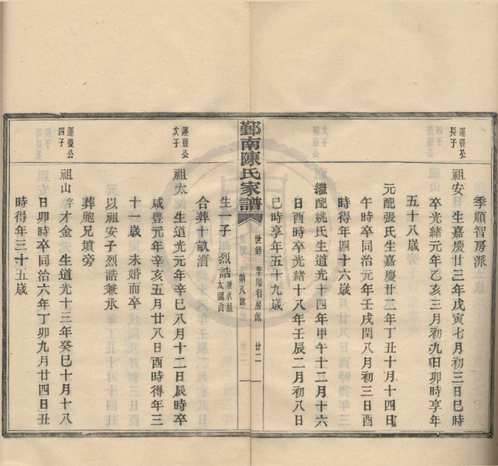 季順智房派
運發公
長子
祖安 日生嘉慶廿三年戊寅七月初三日巳時
卒光緒元年乙亥三月初九日卯時享年
五十八歲
元配張氏生嘉慶廿二年丁丑十月十四日
午時卒同治元年壬戌閏八月初三日酉
時得年四十六歲
繼配姚氏生道光十四年甲午十二月十六
日酉時卒光緒十八年壬辰二月初八日
巳時享年五十九歲
鄞南陳氏家譜
世錄 季順智房派 廿二
生一子 烈誥
合葬十畝瀆
運發公
次子
祖太 生道光元年辛巳八月十二日辰時卒
咸豐元年辛亥五月廿八日酉時得年三
十一歲 未婚而卒
以祖安子烈誥兼承
葬胞兄墳旁
運發公
四子
祖山 字才金 生道光十三年癸巳十月十八
日卯時卒同治六年丁卯九月廿四日丑
時得年三十五歲